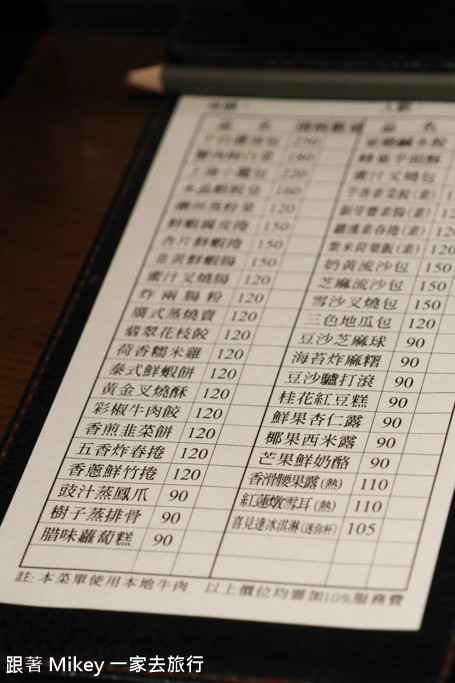 品 名
上海小籠包 220
鮮蝦腐皮捲 150
杏片鮮蝦捲 150
韭黃鮮蝦腸 150
蜜汁叉燒腸 120
炸兩腸粉 120
廣式蒸燒賣 120
翡翠花枝餃 120
荷香糯米雞 120
泰式鮮蝦餅 120
黃金叉燒酥 120
彩椒牛肉餃 120
香煎韭菜餅 120
五香炸春捲 120
香蔥鮮竹捲 120
豉汁蒸鳳爪 90
樹子蒸排骨 90
腊味蘿蔔糕 90
品 名
蜜汁叉燒包
奶黃流沙包 150
芝麻流沙包 150
雪沙叉燒包 120
三色地瓜包 120
豆沙芝麻球 90
海苔炸麻糬 90
豆沙驢打滾 90
桂花紅豆糕 90
鮮果杏仁露 90
椰果西米露 90
芒果鮮奶酪 90
香滑腰果露(熱) 110
紅蓮燉雪耳(熱) 110
喜見達冰淇淋(迷你杯) 105
註: 本菜單使用本地牛肉 以上價位均需加10%服務費
跟著 Mikey 一家去旅行